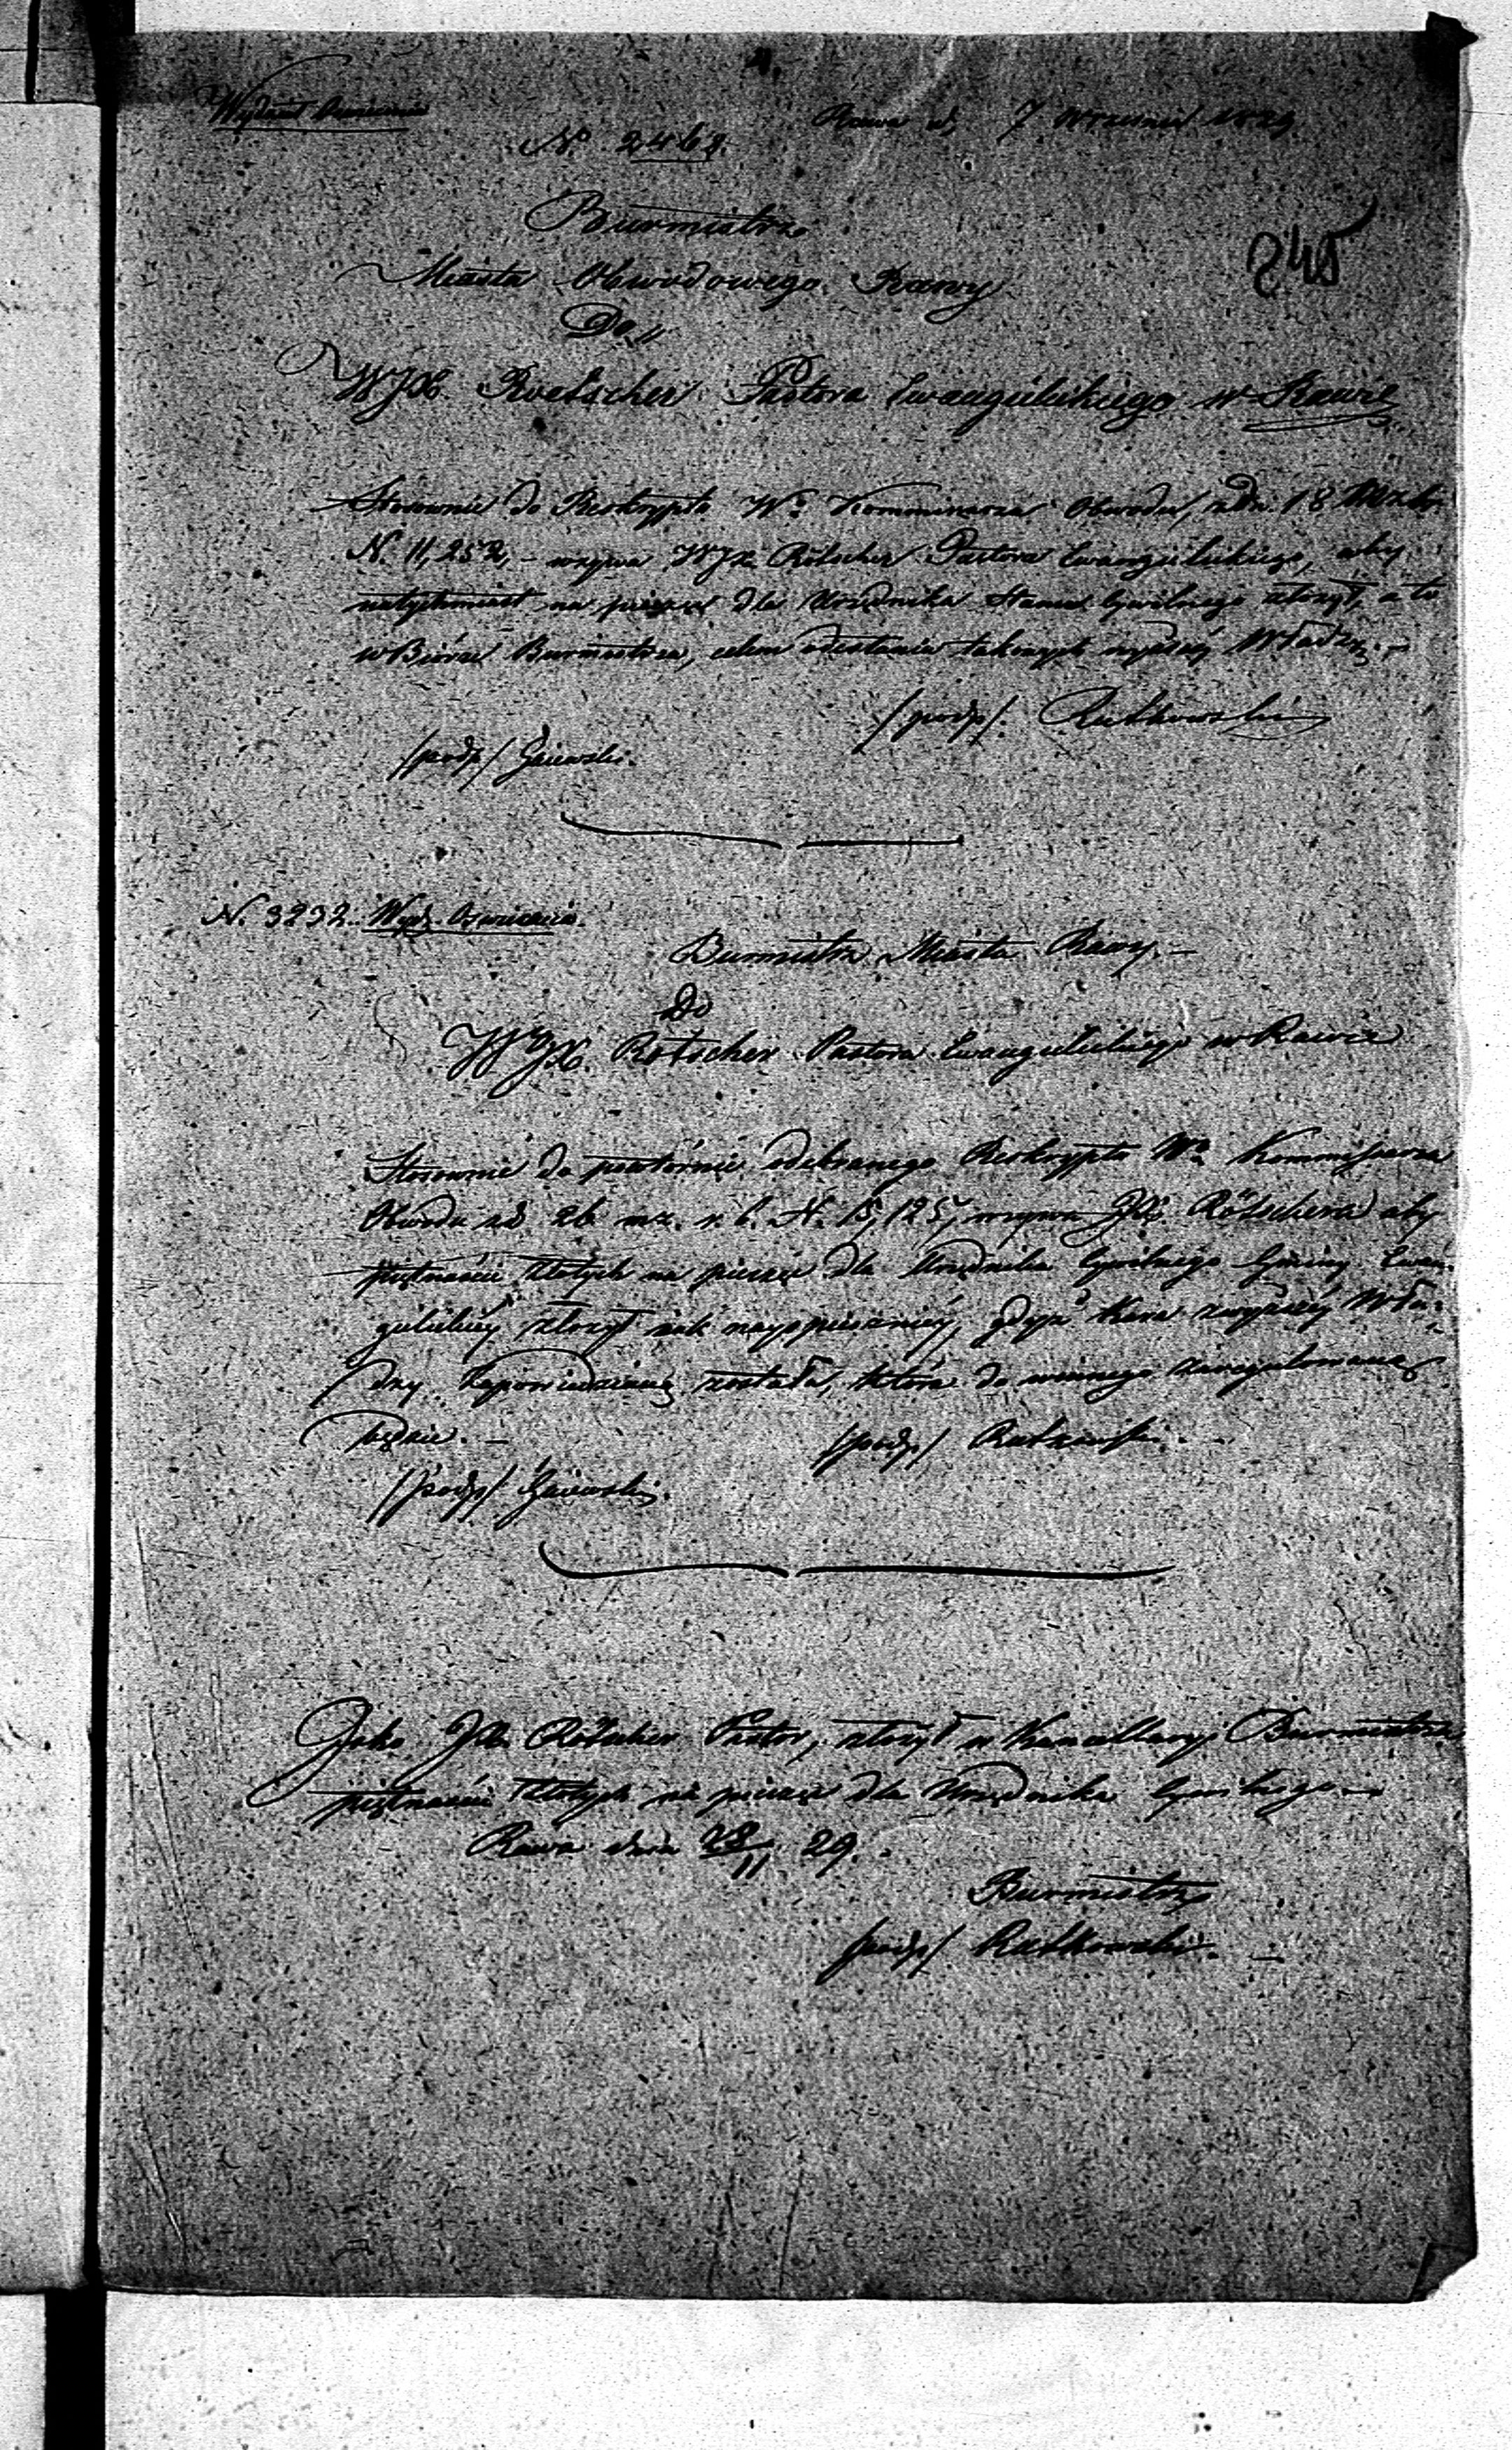 4.
Wydział Oświecenia
Rawa d. 7 Września 1829.
N. 2468.
Burmistrz
Miasta Obwodowego Rawy
245
Do
WJX. Roetscher Pastora Ewangielickiego w Rawie
Stosownie do Reskryptu Wo Kommissarza Obwodu, z dn. 18
N. 11,252, – wzywa WJX. Rötscher Pastora Ewangielickiego, aby
natychmiast na pieczęć dla Urzędnika Stanu Cywilnego złożył, a to
w Biórze Burmistrza, celem odesłania takowych wyższéy Władzy. –
/podp/. Rutkowski
/podp/ Gaiewski.
N. 3232. Wydz. Oświecenia.
Burmistrz Miasta Rawy. –
Do
WJX. Rötscher Pastora Ewangielickiego w Rawie
Stosownie do powtórnie odebranego Reskryptu Wo Kommissarza
Obwodu z d. 26 mz. r. b. N. 15,125, wzywa JX. Rötschera aby
piętnaście złotych na pieczęć dla Urzędnika Cywilnego Gminy Ewan-
gielickiéy złożył iak nayśpieszniéy, gdyż kara z wyższéy Wła-
dzy zapowiedzianą została, która do winnego
będzie. –
/podp/ Rutkowski. –
/podp/ Gaiewski.
Jako JX. Rötscher Pastor, złożył w Kancellaryi Burmistrza
piętnaście złotych na pieczęć dla Urzędnika Cywilnego –
Rawa dnia 28/11 29.
Burmistrz
/podp/ Rutkowski. –